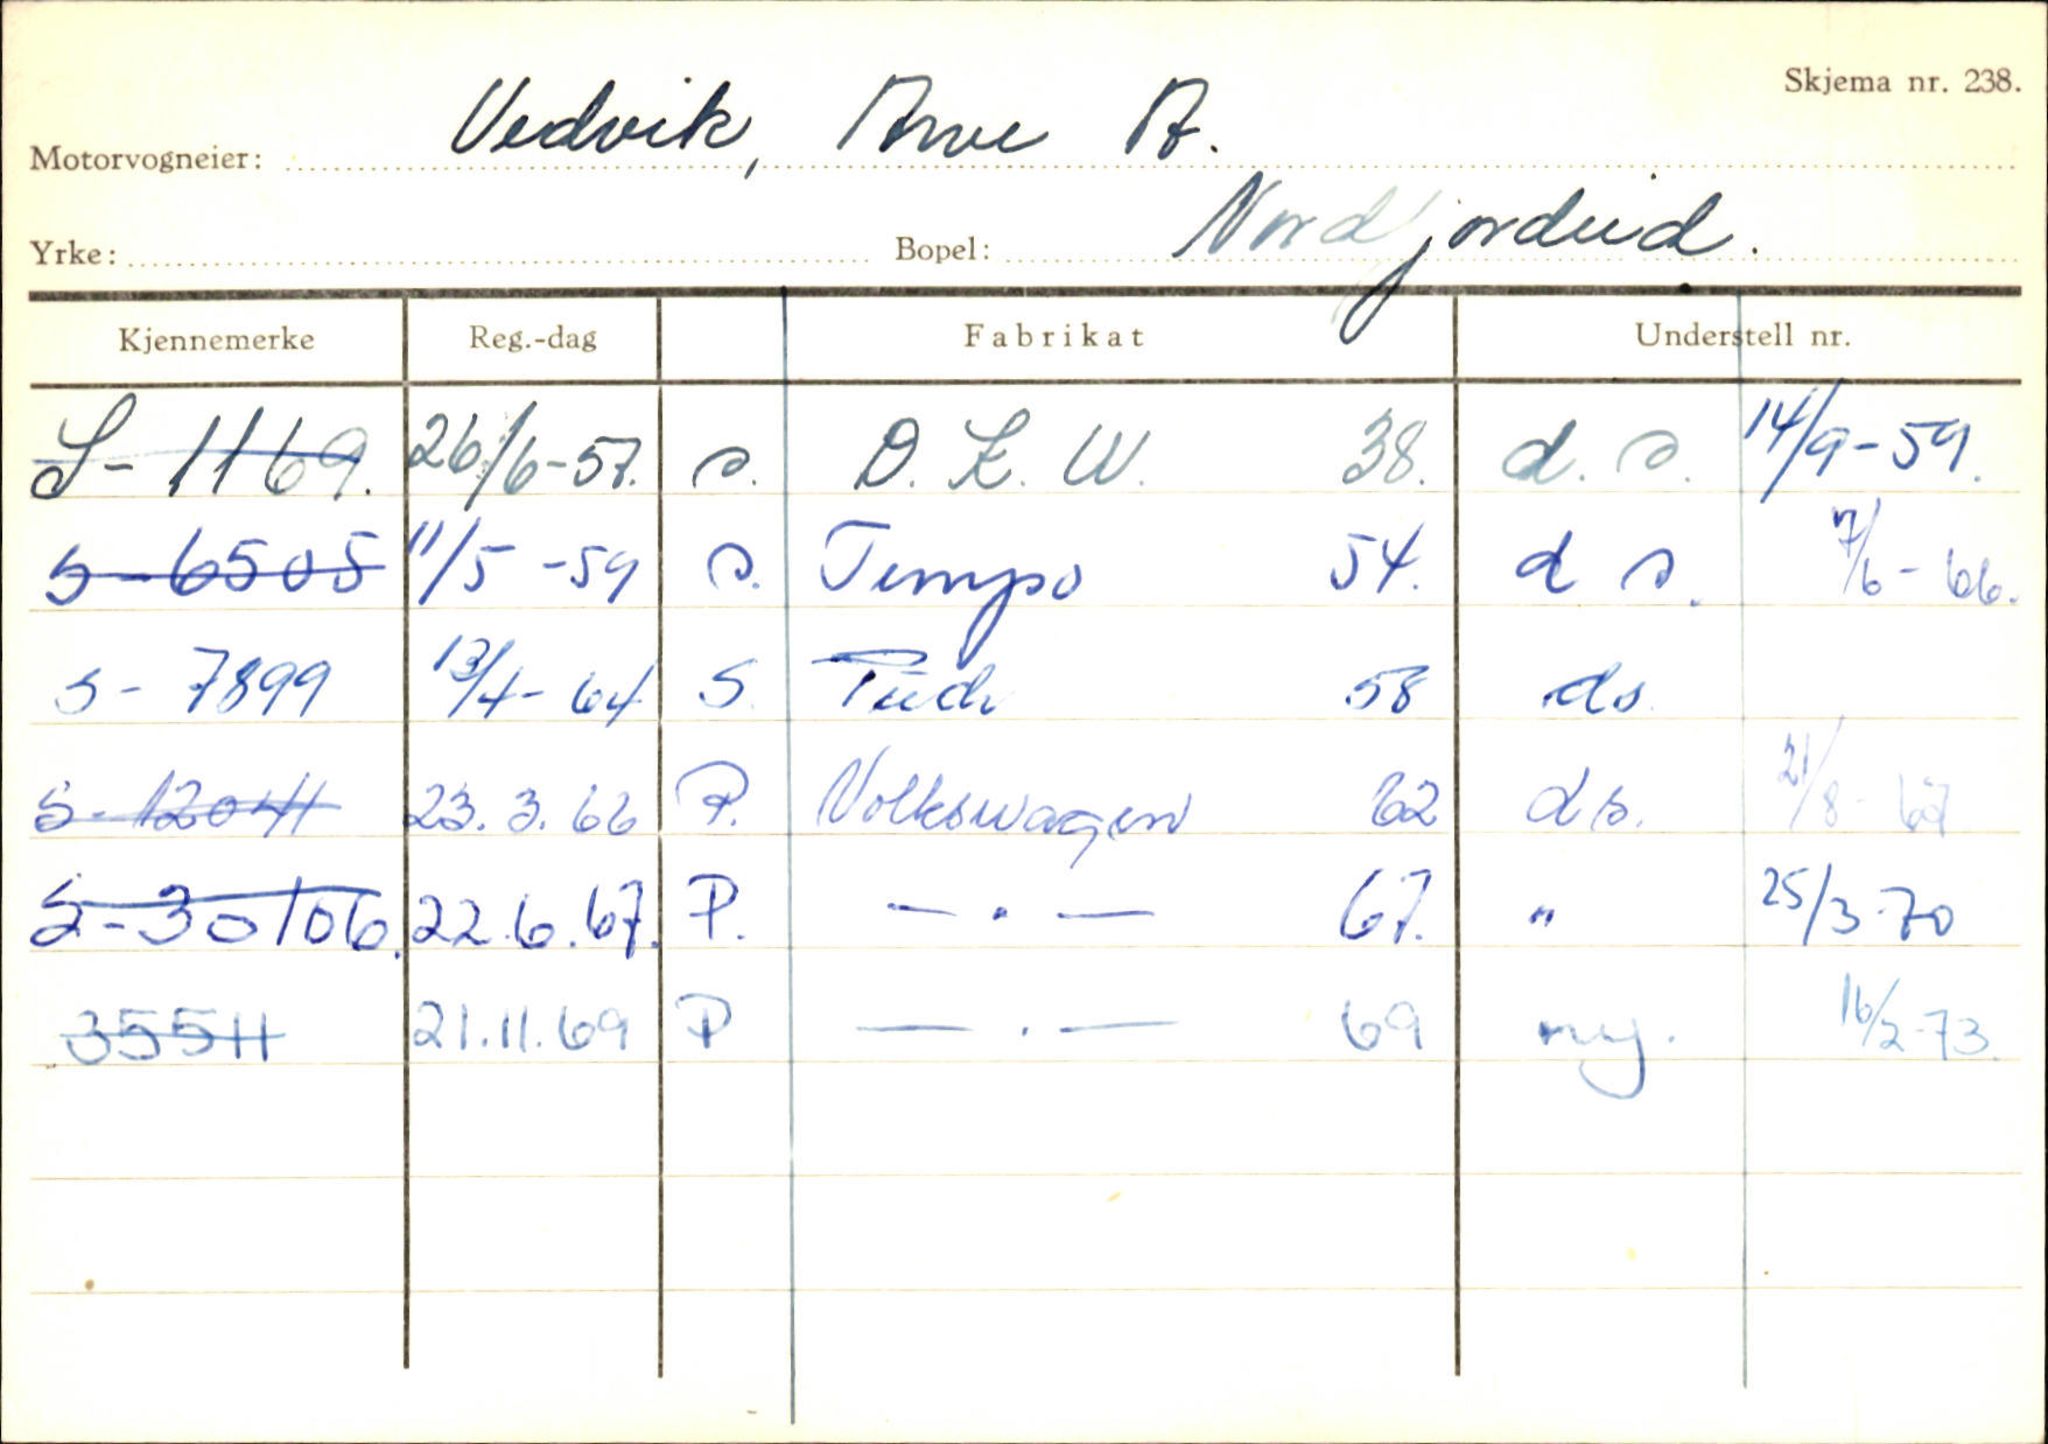 Skjema nr. 238.
Motorvogneier: Vedvik, Arve A.
Yrke: Bopel: Nordfjordeid.
Kjennemerke Reg.-dag Fabrikat Understell nr.
S- 1169. 26/6-57. s. D. K. W. 38. d. s. 14/9-59.
S-6505 11/5 -59 s. Tempo 54. d s. 7/6-66.
S- 7899 13/4-64 S. Püch 58 ds.
S-12041 23.3.66 P. Volkswagen 62 ds. 21/8-67
S-30106. 22.6.67. P. — . — 67. " 25/3-70
35511 21.11.69 P — . — 69 ny. 16/2-73.